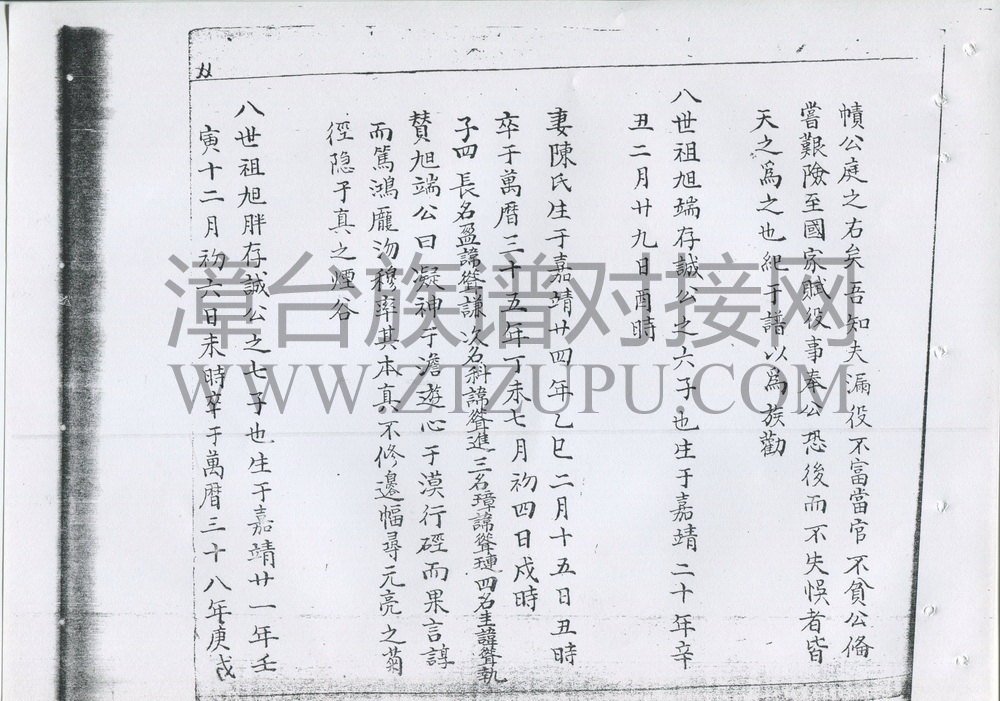 幘公庭之右矣吾知夫漏役不富當官不貧公俻
嘗艱險至國家賦役事奉公恐後而不失悞者皆
天之為之也紀于譜以為族勸
八世祖旭端存誠公之六子也生于嘉靖二十年辛
丑二月廿九日酉時
妻陳氏生于嘉靖廿四年乙巳二月十五日丑時
卒于萬曆三十五年丁未七月初四日戍時
子四長名盈諱聳謙次名斜諱聳進三名璋諱聳璉四名圭諱聳執
贊旭端公曰凝神于澹遊心于漠行硜而果言諄
而篤鴻龎沕穆率其本真不修邊幅尋元亮之菊
徑隐子真之煙谷
八世祖旭胖存誠公之七子也生于嘉靖廿一年壬
寅十二月初六日未時卒于萬曆三十八年庚戌
漳台族谱对接网
WWW.ZTZUPU.COM